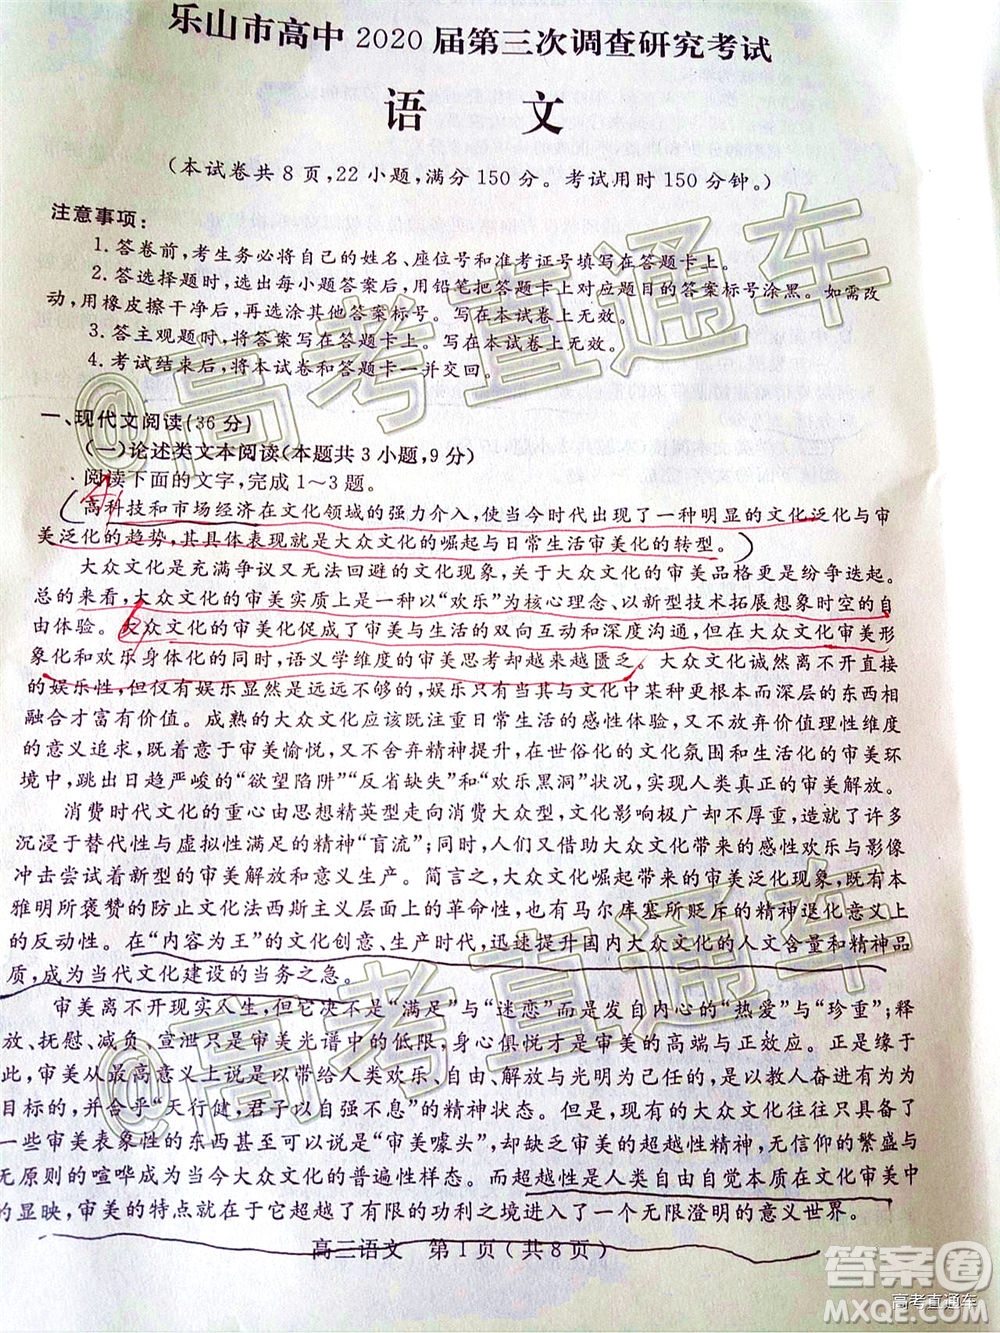 乐山市高中2020届第三次调查研究考试
语 文
(本试卷共8页,22小题,满分150分。考试用时150分钟。)
注意事项:
1.答卷前,考生务必将自己的姓名、座位号和准考证号填写在答题卡上。
2.答选择题时,选出每小题答案后,用铅笔把答题卡上对应题目的答案标号涂黑。如需改
动,用橡皮擦干净后,再选涂其他答案标号。写在本试卷上无效。
3.答主观题时,将答案写在答题卡上。写在本试卷上无效。
4.考试结束后,将本试卷和答题卡一并交回。
一、现代文阅读(36分)
(一)论述类文本阅读(本题共3小题,9分)
阅读下面的文字,完成1~3题。
高科技和市场经济在文化领域的强力介入,使当今时代出现了一种明显的文化泛化与审
美泛化的趋势,其具体表现就是大众文化的崛起与日常生活审美化的转型。
大众文化是充满争议又无法回避的文化现象,关于大众文化的审美品格更是纷争迭起。
总的来看,大众文化的审美实质上是一种以“欢乐”为核心理念、以新型技术拓展想象时空的自
由体验。大众文化的审美化促成了审美与生活的双向互动和深度沟通,但在大众文化审美形
象化和欢乐身体化的同时,语义学维度的审美思考却越来越匮乏。大众文化诚然离不开直接
的娱乐性,但仅有娱乐显然是远远不够的,娱乐只有当其与文化中某种更根本而深层的东西相
融合才富有价值。成熟的大众文化应该既注重日常生活的感性体验,又不放弃价值理性维度
的意义追求,既带来审美愉悦,又不舍弃精神提升,在世俗化的文化氛围和生活化的审美环
境中,跳出日趋严峻的“欲望陷阱”“反省缺失”和“欢乐黑洞”状况,实现人类真正的审美解放。
消费时代文化的重心由思想精英型走向消费大众型,文化影响极广却不厚重,造就了许多
沉浸于替代性与虚拟性满足的精神“盲流”;同时,人们又借助大众文化带来的感性欢乐与影像
冲击尝试着新型的审美解放和意义生产。简言之,大众文化崛起带来的审美泛化现象,既有本
雅明所褒赞的防止文化法西斯主义层面上的革命性,也有马尔库塞所贬斥的精神退化意义上
的反动性。在“内容为王”的文化创意、生产时代,迅速提升国内大众文化的人文含量和精神品
质,成为当代文化建设的当务之急。
审美离不开现实人生,但它决不是“满足”与“迷恋”而是发自内心的“热爱”与“珍重”;释
放、抚慰、减负、宣泄只是审美光谱中的低限,身心俱悦才是审美的高端与正效应。正是缘于
此,审美从最高意义上说是以给人类欢乐、自由、解放与光明为己任的,是以教人奋进有为为
目标的,并合乎“天行健,君子以自强不息”的精神状态。但是,现有的大众文化往往只具备了
一些审美表象性的东西甚至可以说是“审美噱头”,却缺乏审美的超越性精神,无信仰的繁盛与
无原则的喧哗成为当今大众文化的普遍性样态。而超越性是人类自由自觉本质在文化审美中
的显映,审美的特点就在于它超越了有限的功利之境进入了无限澄明的意义世界。
高三语文 第1页(共8页)
@高考直通车
@高考直通车
答案圈
高考直通车
MXQE.COM